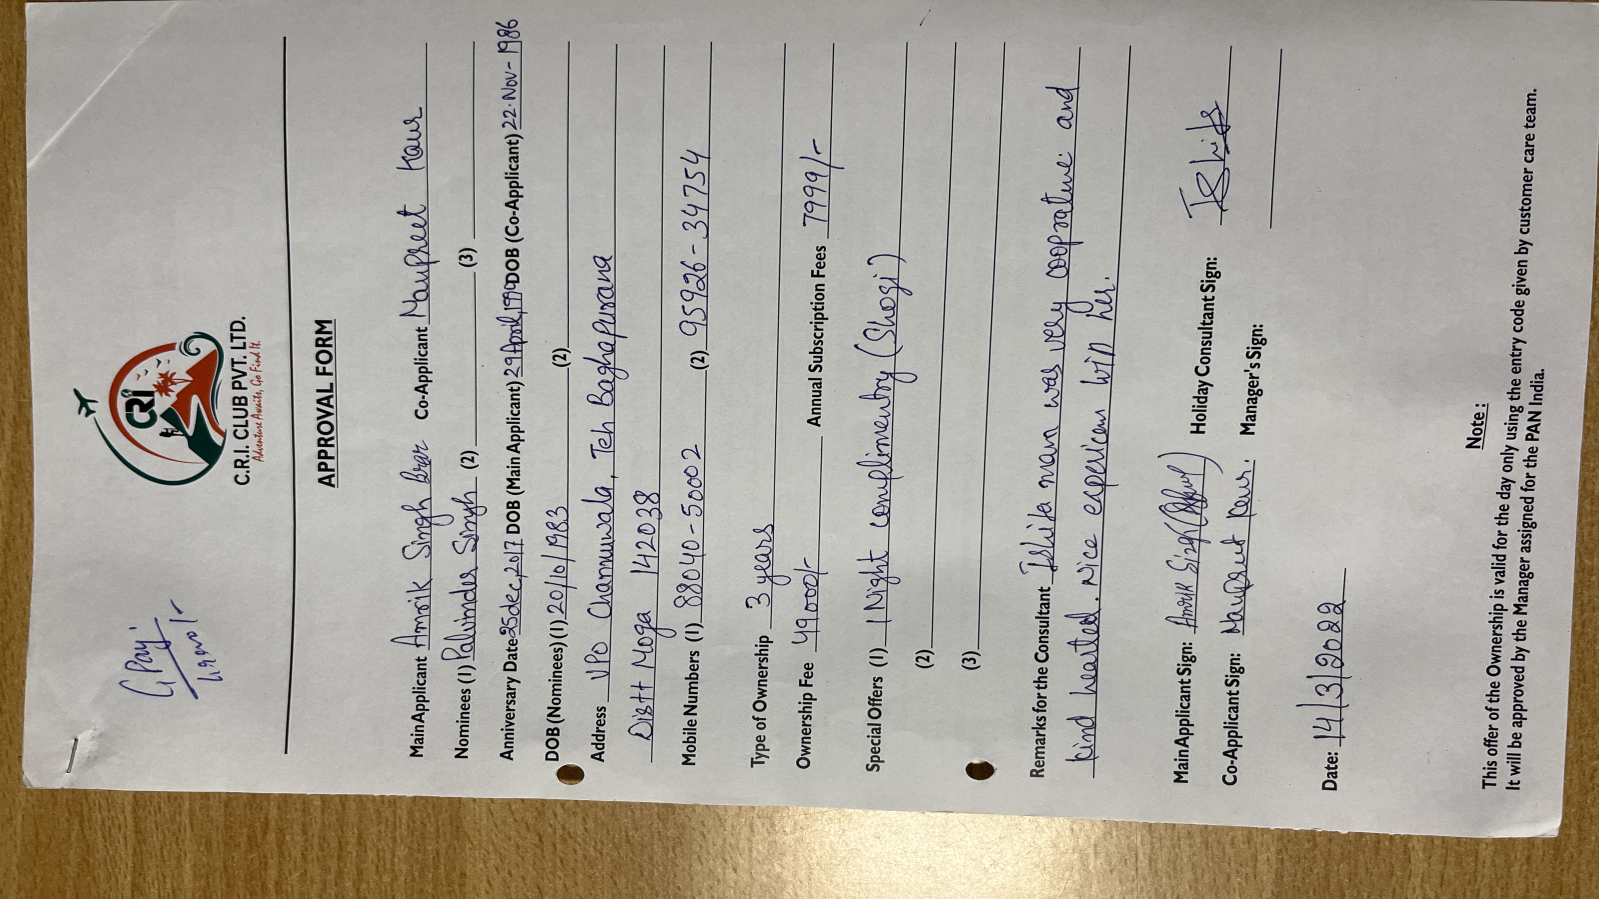 G Pay
49000/-
CRI
C.R.I. CLUB PVT. LTD.
Adventure Awaits, Go Find It.
APPROVAL FORM
Main Applicant Amrik Singh Brar Co-Applicant Navpreet Kaur
Nominees (1) Palwinder Singh (2) (3)
Anniversary Date 25 dec, 2017 DOB (Main Applicant) 29 April, 1990 DOB (Co-Applicant) 22-Nov-1986
DOB (Nominees) (1) 20/10/1983 (2)
Address VPO Channuwala, Teh Baghapurana
Distt Moga 142038
Mobile Numbers (1) 88040-50002 (2) 95926-34754
Type of Ownership 3 years
Ownership Fee 49000/- Annual Subscription Fees 7999/-
Special Offers (1) 1 Night complimentry (Shogi)
(2)
(3)
Remarks for the Consultant Ishita mam was very cooprative and
kind hearted. Nice experience with her.
Main Applicant Sign: Amrik Singh Holiday Consultant Sign: Ishita
Co-Applicant Sign: Navpreet Kaur. Manager's Sign:
Date: 14/3/2022
Note :
This offer of the Ownership is valid for the day only using the entry code given by customer care team.
It will be approved by the Manager assigned for the PAN India.